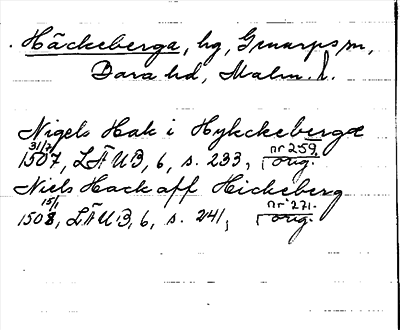 Häckeberga, hg, Genarps sn,
Bara hd, Malm. l.
Nigels Hak i Hykckeberge
31/7 1507, LÄUB, 6, s. 233, nr 259. orig.
Niels Hack aff Hickeberg
15/1 1508, LÄUB, 6, s. 241, nr 271. orig.